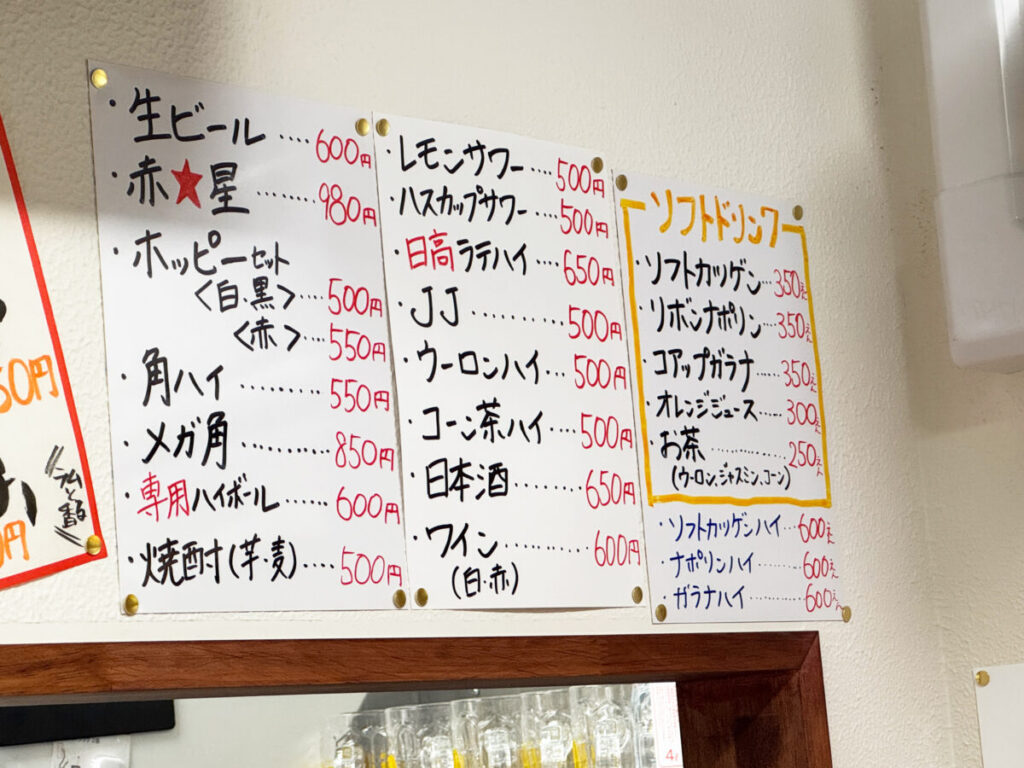 ・生ビール ‥‥ 600円
・赤★星 ‥‥‥ 980円
・ホッピーセット
〈白・黒〉‥‥ 500円
〈赤〉‥‥ 550円
・角ハイ ‥‥‥‥ 550円
・メガ角 ‥‥‥‥ 850円
・専用ハイボール ‥‥‥ 600円
・焼酎(芋・麦) ‥‥ 500円
・レモンサワー ‥‥ 500円
・ハスカップサワー ‥‥ 500円
・日高ラテハイ ‥‥ 650円
・JJ ‥‥‥‥‥ 500円
・ウーロンハイ ‥‥ 500円
・コーン茶ハイ ‥‥ 500円
・日本酒 ‥‥‥‥ 650円
・ワイン ‥‥‥‥‥ 600円
(白・赤)
ソフトドリンク
・ソフトカツゲン ‥ 350えん
・リボンナポリン ‥ 350えん
・コアップガラナ ‥‥ 350えん
・オレンジジュース ‥‥ 300えん
・お茶 ‥‥‥‥‥ 250えん
(ウーロン、ジャスミン、コーン)
・ソフトカツゲンハイ ‥‥ 600えん
・ナポリンハイ ‥‥‥‥ 600えん
・ガラナハイ ‥‥‥‥ 600えん
50円
0円